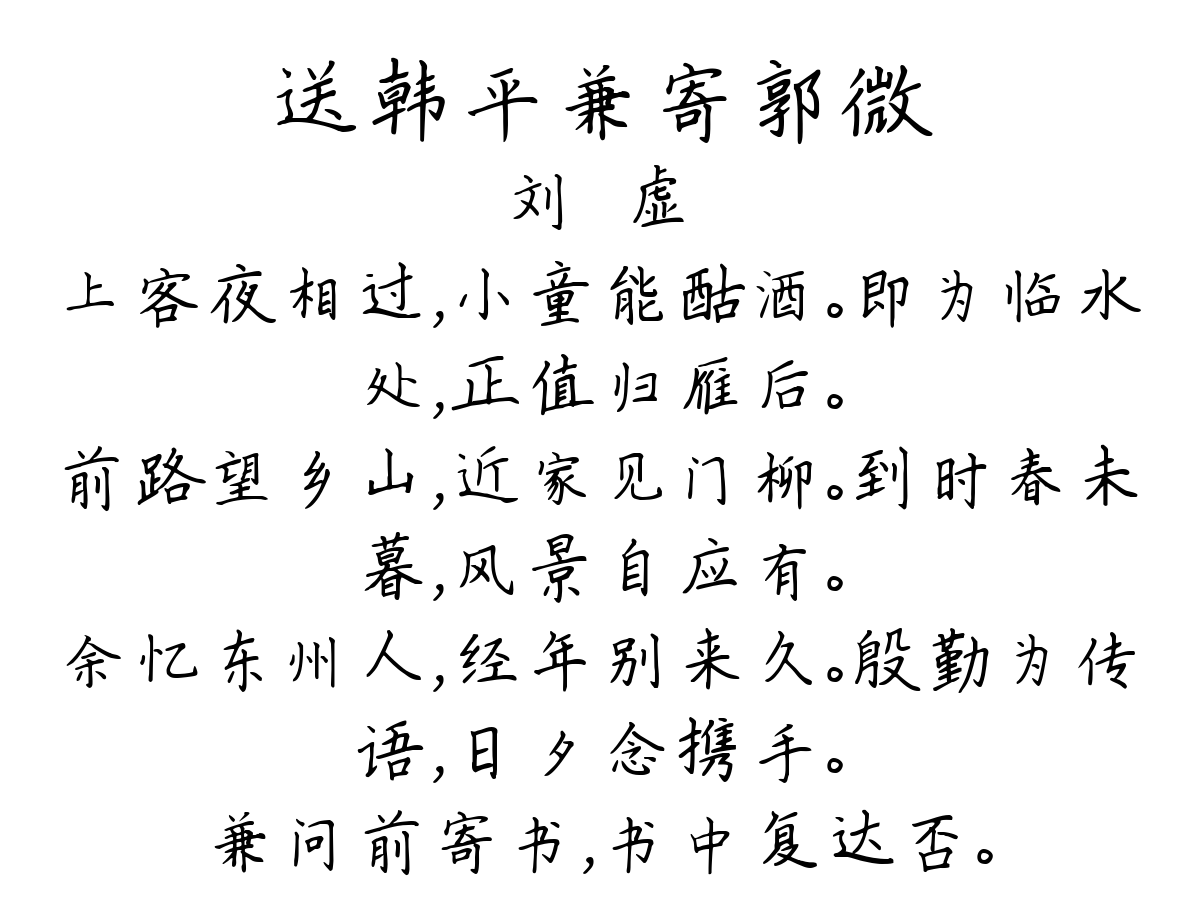 送韩平兼寄郭微
刘 虚
上客夜相过,小童能酤酒。即为临水
处,正值归雁后。
前路望乡山,近家见门柳。到时春未
暮,风景自应有。
余忆东州人,经年别来久。殷勤为传
语,日夕念携手。
兼问前寄书,书中复达否。